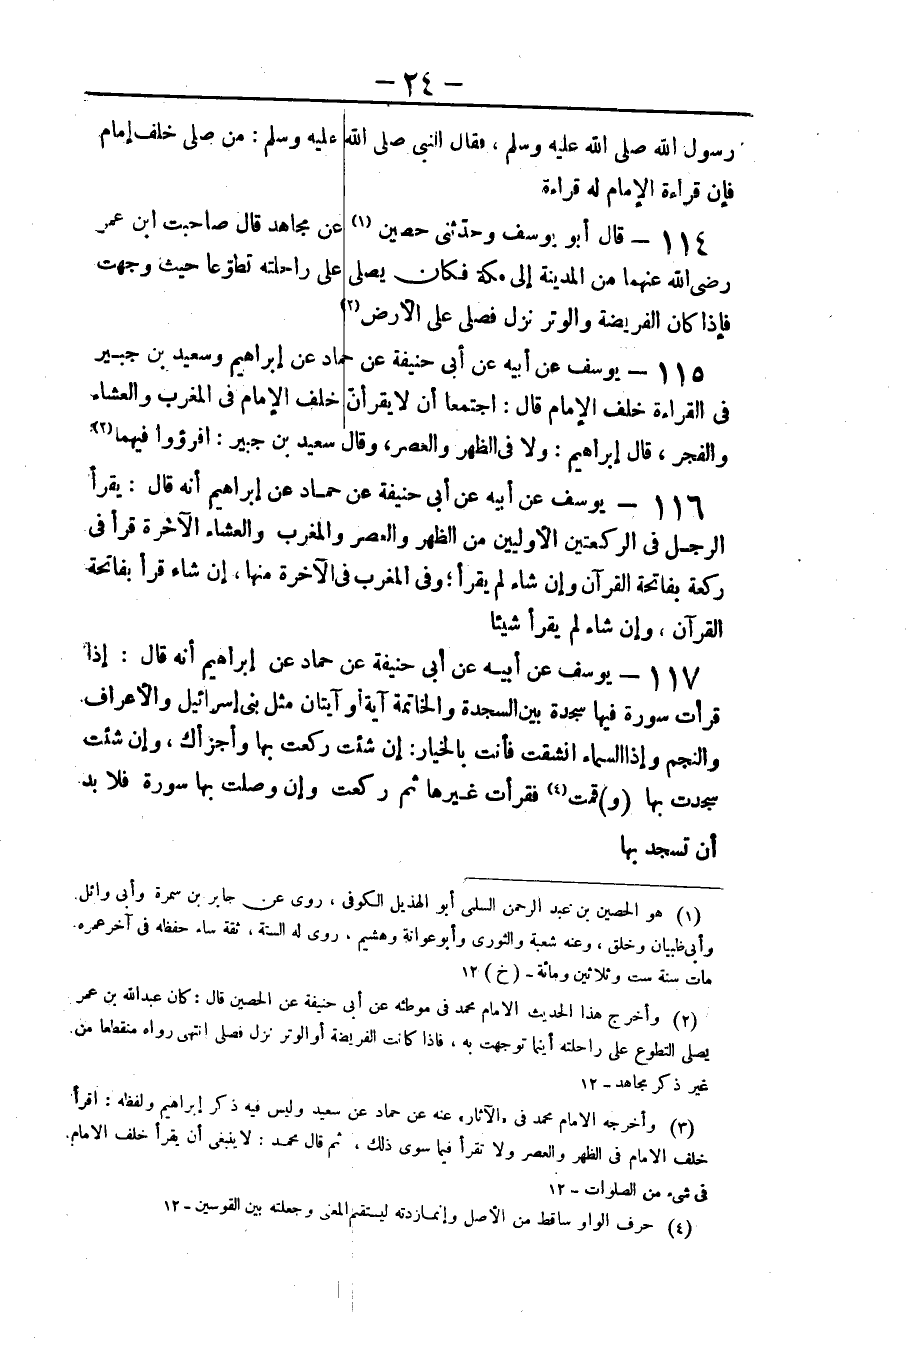 – ٢٤ –
رسول الله صلى الله عليه وسلم ، فقال النبى صلى الله عليه وسلم : من صلى خلف إمام
فإن قراءة الإمام له قراءة
١١٤ – قال أبو يوسف وحدثنى حصين (١) عن مجاهد قال صاحبت ابن عمر
رضى الله عنهما من المدينة إلى مكة فكان يصلى على راحلته تطوّعا حيث وجهت
فإذا كان الفريضة والوتر نزل فصلى على الأرض (٢)
١١٥ – يوسف عن أبيه عن أبى حنيفة عن حماد عن إبراهيم وسعيد بن جبير
فى القراءة خلف الإمام قال : اجتمعا أن لا يقرأنّ خلف الإمام فى المغرب والعشاء
والفجر ، قال إبراهيم : ولا فى الظهر والعصر، وقال سعيد بن جبير : اقرؤوا فيهما (٢)
١١٦ – يوسف عن أبيه عن أبى حنيفة عن حماد عن إبراهيم أنه قال : يقرأ
الرجل فى الركعتين الأوليين من الظهر والعصر والمغرب والعشاء الآخرة قرأ فى
ركعة بفاتحة القرآن وإن شاء لم يقرأ ؛ وفى المغرب فى الآخرة منها ، إن شاء قرأ بفاتحة
القرآن ، وإن شاء لم يقرأ شيئا
١١٧ – يوسف عن أبيه عن أبى حنيفة عن حماد عن إبراهيم أنه قال : إذا
قرأت سورة فيها سجدة بين السجدة والخاتمة آية أو آيتان مثل بنى إسرائيل والأعراف
والنجم وإذا السماء انشقت فأنت بالخيار: إن شئت ركعت بها وأجزأك ، وإن شئت
سجدت بها (و)قمت (٤) فقرأت غيرها ثم ركعت وإن وصلت بها سورة فلا بد
أن تسجد بها
(١) هو الحصين بن عبد الرحمن السلمى أبو الهذيل الكوفى ، روى عن جابر بن سمرة وأبى وائل
وأبى ظبيان وخلق ، وعنه شعبة والثورى وأبو عوانة وهشيم ، روى له الستة ، ثقة ساء حفظه فى آخر عمره
مات سنة ست وثلاثين ومائة – (خ) ١٢
(٢) وأخرج هذا الحديث الامام محمد فى موطئه عن أبى حنيفة عن الحصين قال : كان عبد الله بن عمر
يصلى التطوع على راحلته أينما توجهت به ، فاذا كانت الفريضة أو الوتر نزل فصلى انتهى رواه منقطعا من
غير ذكر مجاهد – ١٢
(٣) وأخرجه الامام محمد فى «الآثار» عنه عن حماد عن سعيد وليس فيه ذكر إبراهيم ولفظه : اقرأ
خلف الامام فى الظهر والعصر ولا تقرأ فيما سوى ذلك ، ثم قال محمد : لا ينبغى أن يقرأ خلف الامام
فى شىء من الصلوات – ١٢
(٤) حرف الواو ساقط من الأصل وإنما زدته ليستقيم المعنى وجعلته بين القوسين – ١٢